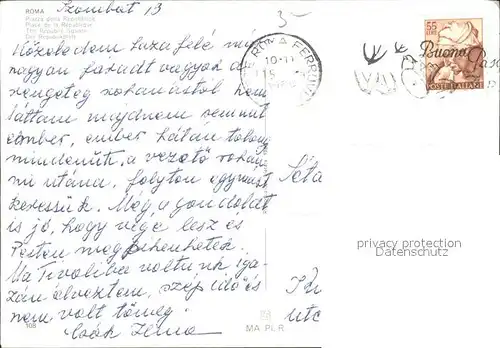 ROMA
Szombat 13
Piazza della Repubblica
Place de la République
The Republic Square
Közeledem haza felé már
nagyon fáradt vagyok a
rengeteg rohanástól nem
láttam majdnem semmit
ember, ember hátán tolong
mindenütt, a vezető rohan
mi utána, folyton egymást
keressük. Még a gondolat
is jó, hogy vége lesz és
Pesten megpihenhetek.
Ma Tivoliba voltunk iga-
zán élveztem, szép idő és
nem volt tömeg.
108
MA.PI.R
ROMA FERROVIA
Buona
55
LIRE
POSTE ITALIANE
Séta
utc
privacy protection
Datenschutz